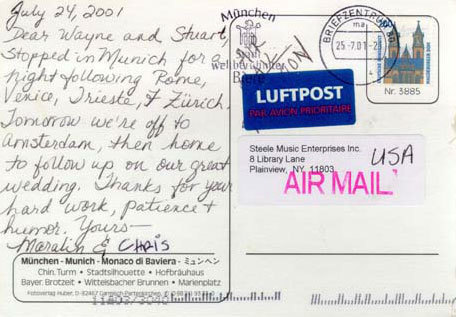 July 24, 2001
Dear Wayne and Stuart,
Stopped in Munich for a
night following Rome,
Venice, Trieste, & Zürich.
Tomorrow we're off to
Amsterdam, then home
to follow up on our great
wedding. Thanks for your
hard work, patience &
humor. Yours—
Maralin & CHRIS
München - Munich - Monaco di Baviera - ミュンヘン
Chin. Turm • Stadtsilhouette • Hofbräuhaus
Bayer. Brotzeit • Wittelsbacher Brunnen • Marienplatz
Fotoverlag Huber, D-82467 Garmisch-Partenkirchen
München
weltberühmter
BRIEFZENTRUM 80
ma
25-7.01-2
Nr. 3885
LUFTPOST
PAR AVION PRIORITAIRE
Steele Music Enterprises Inc.
8 Library Lane
Plainview, NY, 11803
USA
AIR MAIL